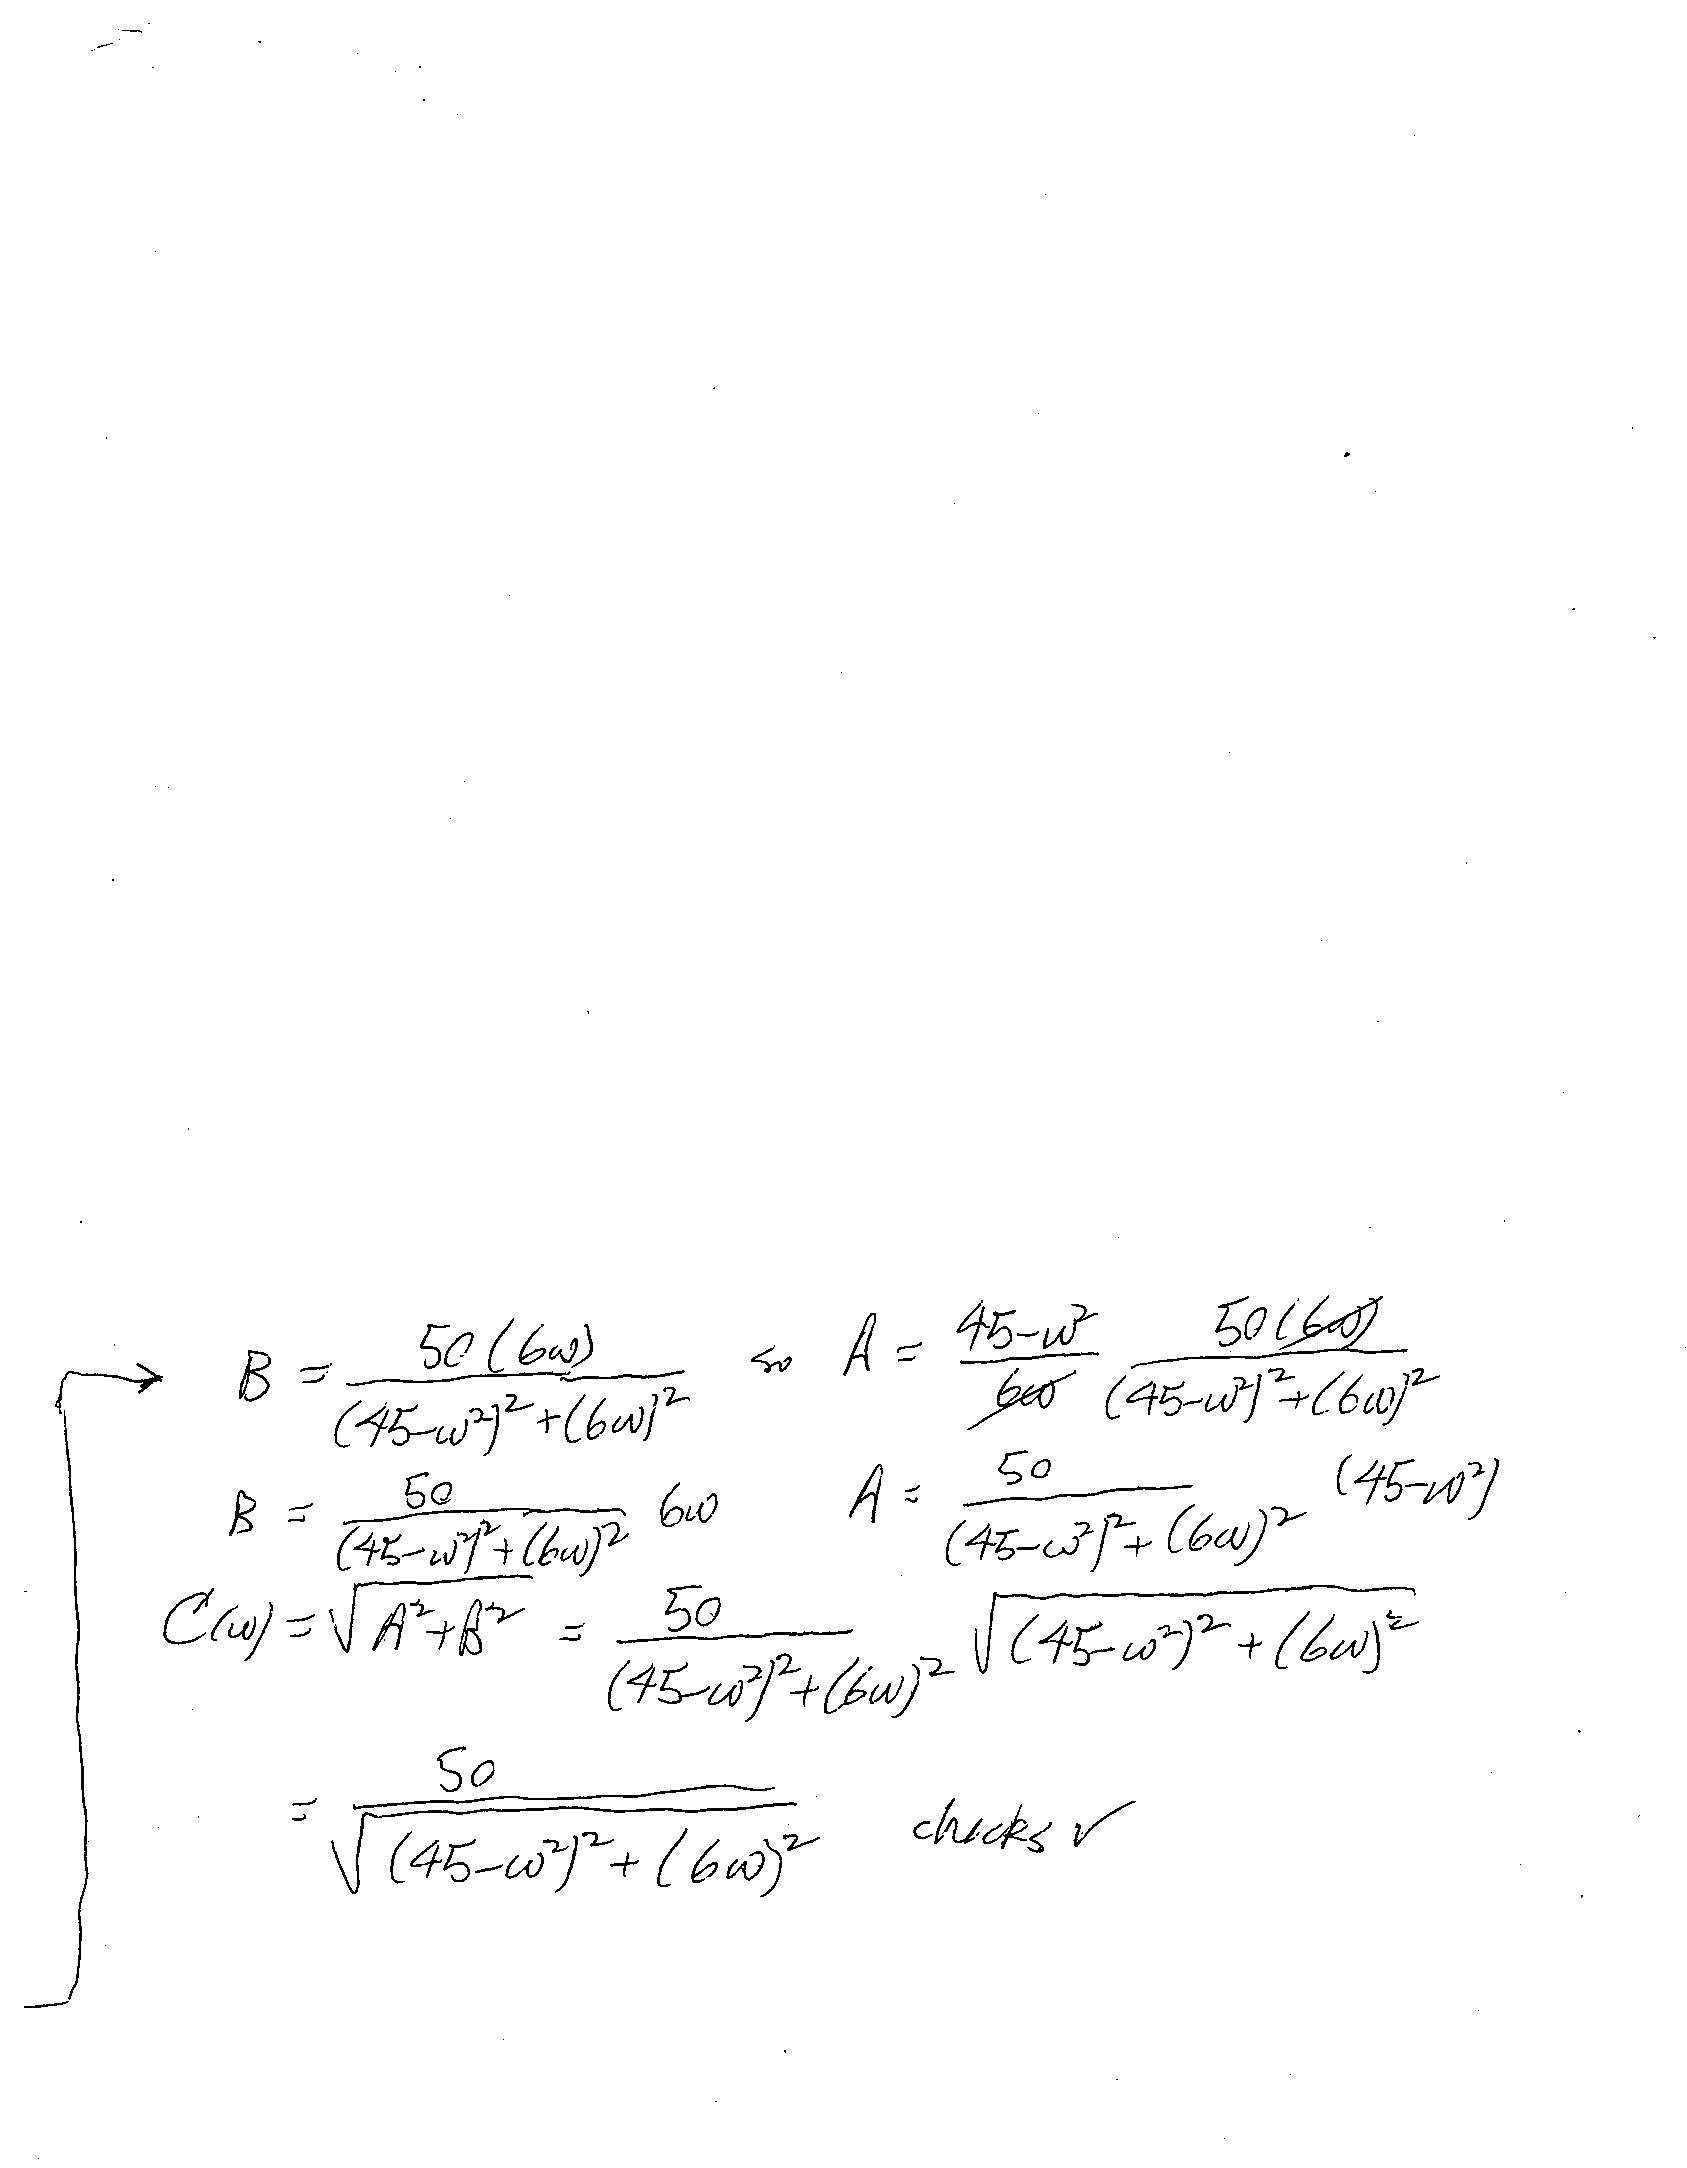 → B = 50(6ω) / ((45-ω²)² + (6ω)²) so A = (45-ω²)/(6ω) 50(6ω) / ((45-ω²)² + (6ω)²)
B = 50 / ((45-ω²)² + (6ω)²) 6ω A = 50 / ((45-ω²)² + (6ω)²) (45-ω²)
C(ω) = √(A²+B²) = 50 / ((45-ω²)² + (6ω)²) √((45-ω²)² + (6ω)²)
= 50 / √((45-ω²)² + (6ω)²) checks ✓